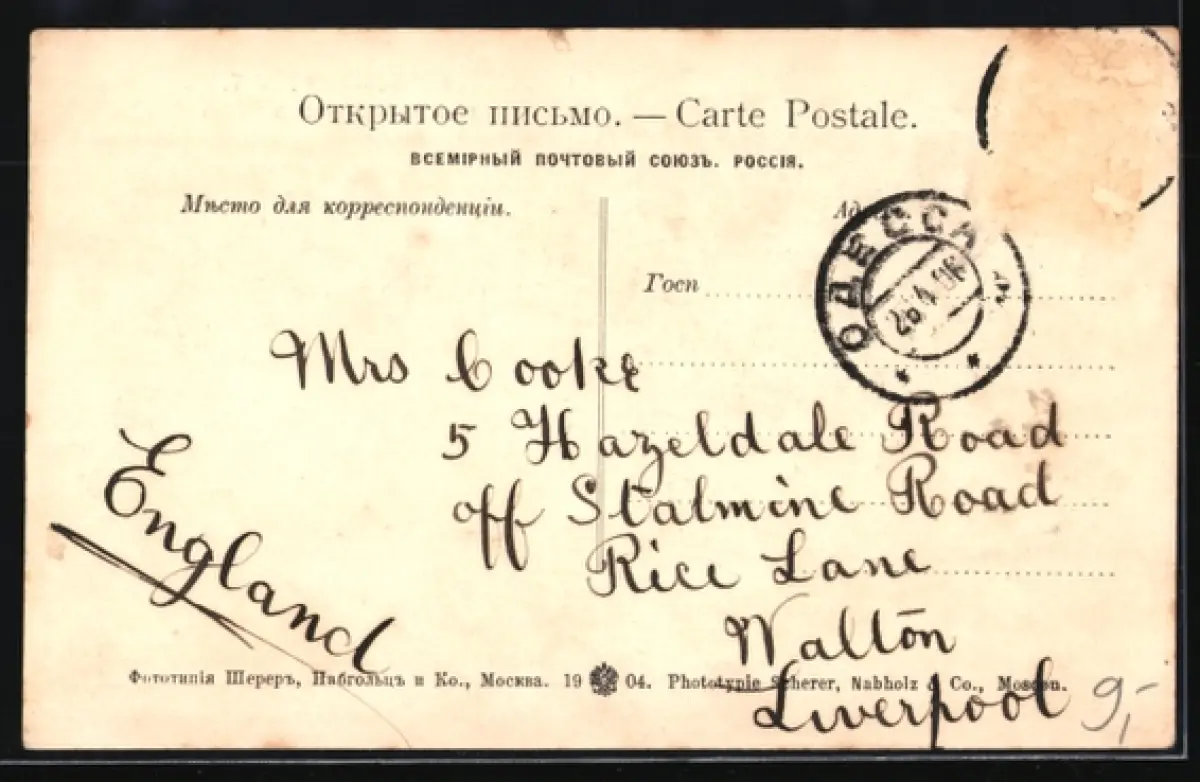 Открытое письмо. — Carte Postale.
ВСЕМІРНЫЙ ПОЧТОВЫЙ СОЮЗЪ. РОССІЯ.
Мѣсто для корреспонденціи.
ОДЕССА
Госп
Mrs Cooke
5 Hazeldale Road
off Stalmine Road
Rice Lane
Walton
Liverpool
England
Фототипія Шереръ, Набгольцъ и Ко., Москва. 19 04. Phototypie Scherer, Nabholz & Co., Moscou.
9,-